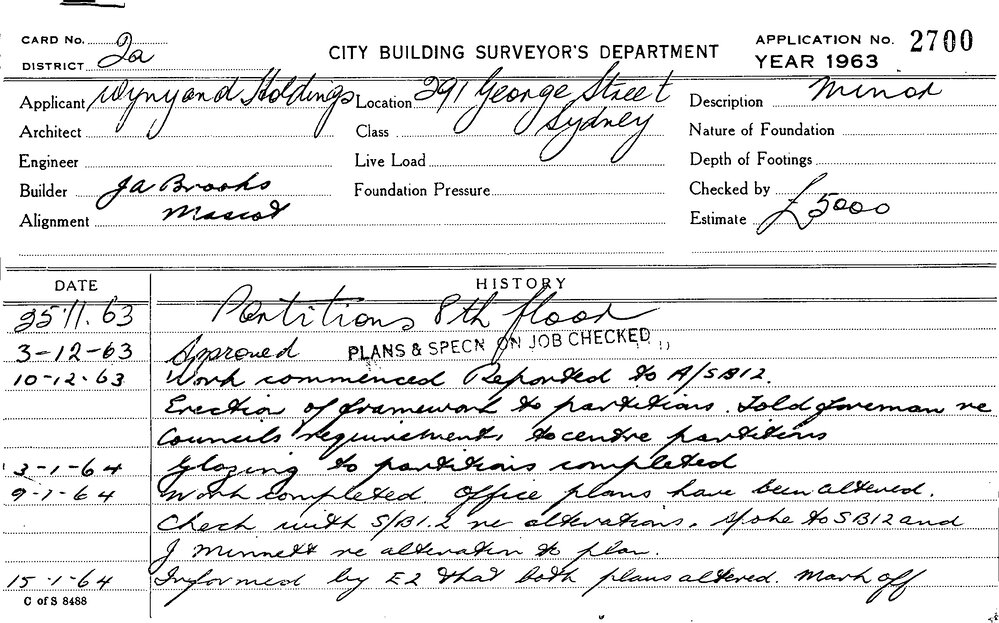 CARD No.
DISTRICT 2a
CITY BUILDING SURVEYOR'S DEPARTMENT
APPLICATION No. 2700
YEAR 1963
Applicant Wynyard Holdings
Location 291 George Street
Sydney
Description Minor
Architect
Class
Nature of Foundation
Engineer
Live Load
Depth of Footings
Builder Ja Brooks
Foundation Pressure
Checked by
Alignment Mascot
Estimate £5000
DATE HISTORY
25.11.63 Partitions 8th floor
3-12-63 Approved PLANS & SPECN ON JOB CHECKED
10-12-63 Work commenced Reported to A/SB12.
Erection of framework to partitions. Told foreman re
Councils requirements to centre partitions
3-1-64 Glazing to partitions completed
9-1-64 Work completed. Office plans have been altered.
Check with S/B1.2 re alterations. Spoke to SB12 and
J Minnett re alteration to plan.
15-1-64 Informed by E2 that both plans altered. Mark off
C of S 8488